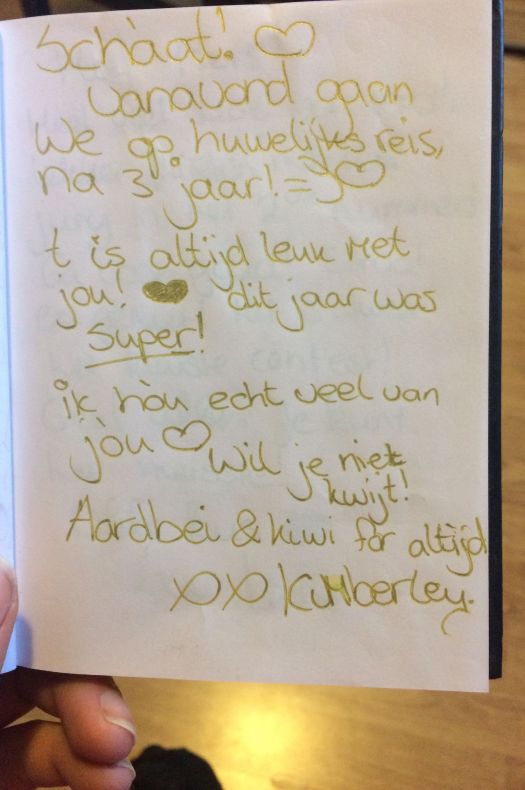 Schaat! ♡
vanavond gaan
we op huwelijksreis,
na 3 jaar! =) ♡
t is altijd leuk met
jou! ♥ dit jaar was
super!
ik hou echt veel van
jou ♡ wil je niet
kwijt!
Aardbei & kiwi for altijd
XX Kimberley.